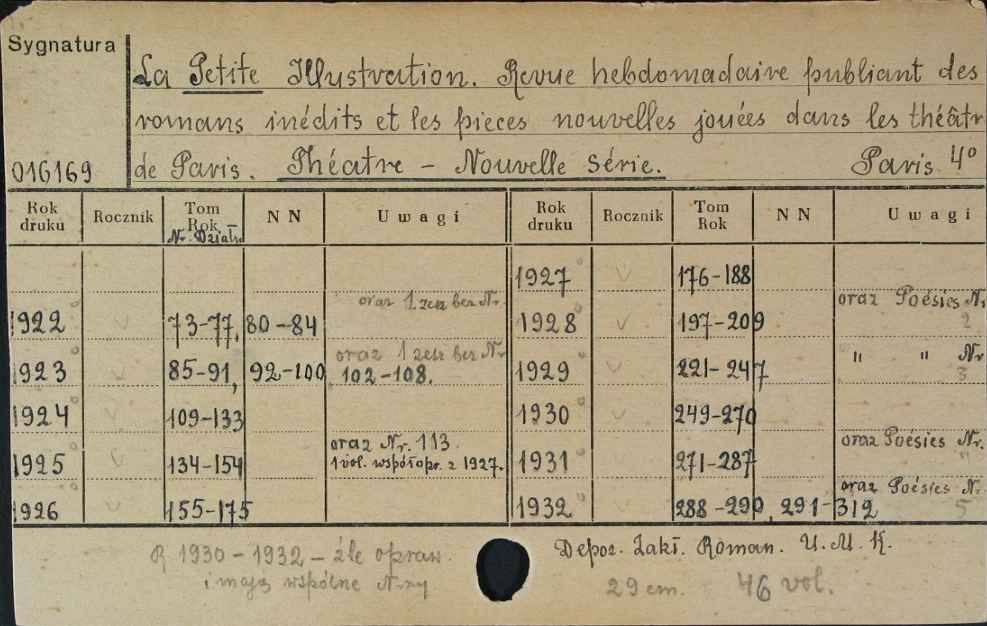 Sygnatura
La Petite Illustration. Revue hebdomadaire publiant des
romans inédits et les pieces nouvelles jouées dans les théâtr
016169 de Paris. Théatre – Nouvelle série. Paris 4°
Rok druku Rocznik Tom Rok Nr. Działu N N Uwagi Rok druku Rocznik Tom Rok N N Uwagi
1927 v 176-188
oraz 1 zesz bez Nr. oraz Poésies Nr
1922 v 73-77, 80-84 1928 v 197-209 2
oraz 1 zesz bez Nr " " Nr
1923 v 85-91, 92-100, 102-108. 1929 v 221-247 3
1924 v 109-133 1930 v 249-270
oraz Nr. 113 oraz Poésies Nr.
1925 v 134-154 1 vol. współopr. z 1927. 1931 v 271-287
oraz Poésies N.
1926 155-175 1932 288-290, 291-312 5
R 1930-1932 – źle opraw. Depoz. Zakł. Roman. U.M.K.
i mają wspólne N-ry 29 cm. 46 vol.